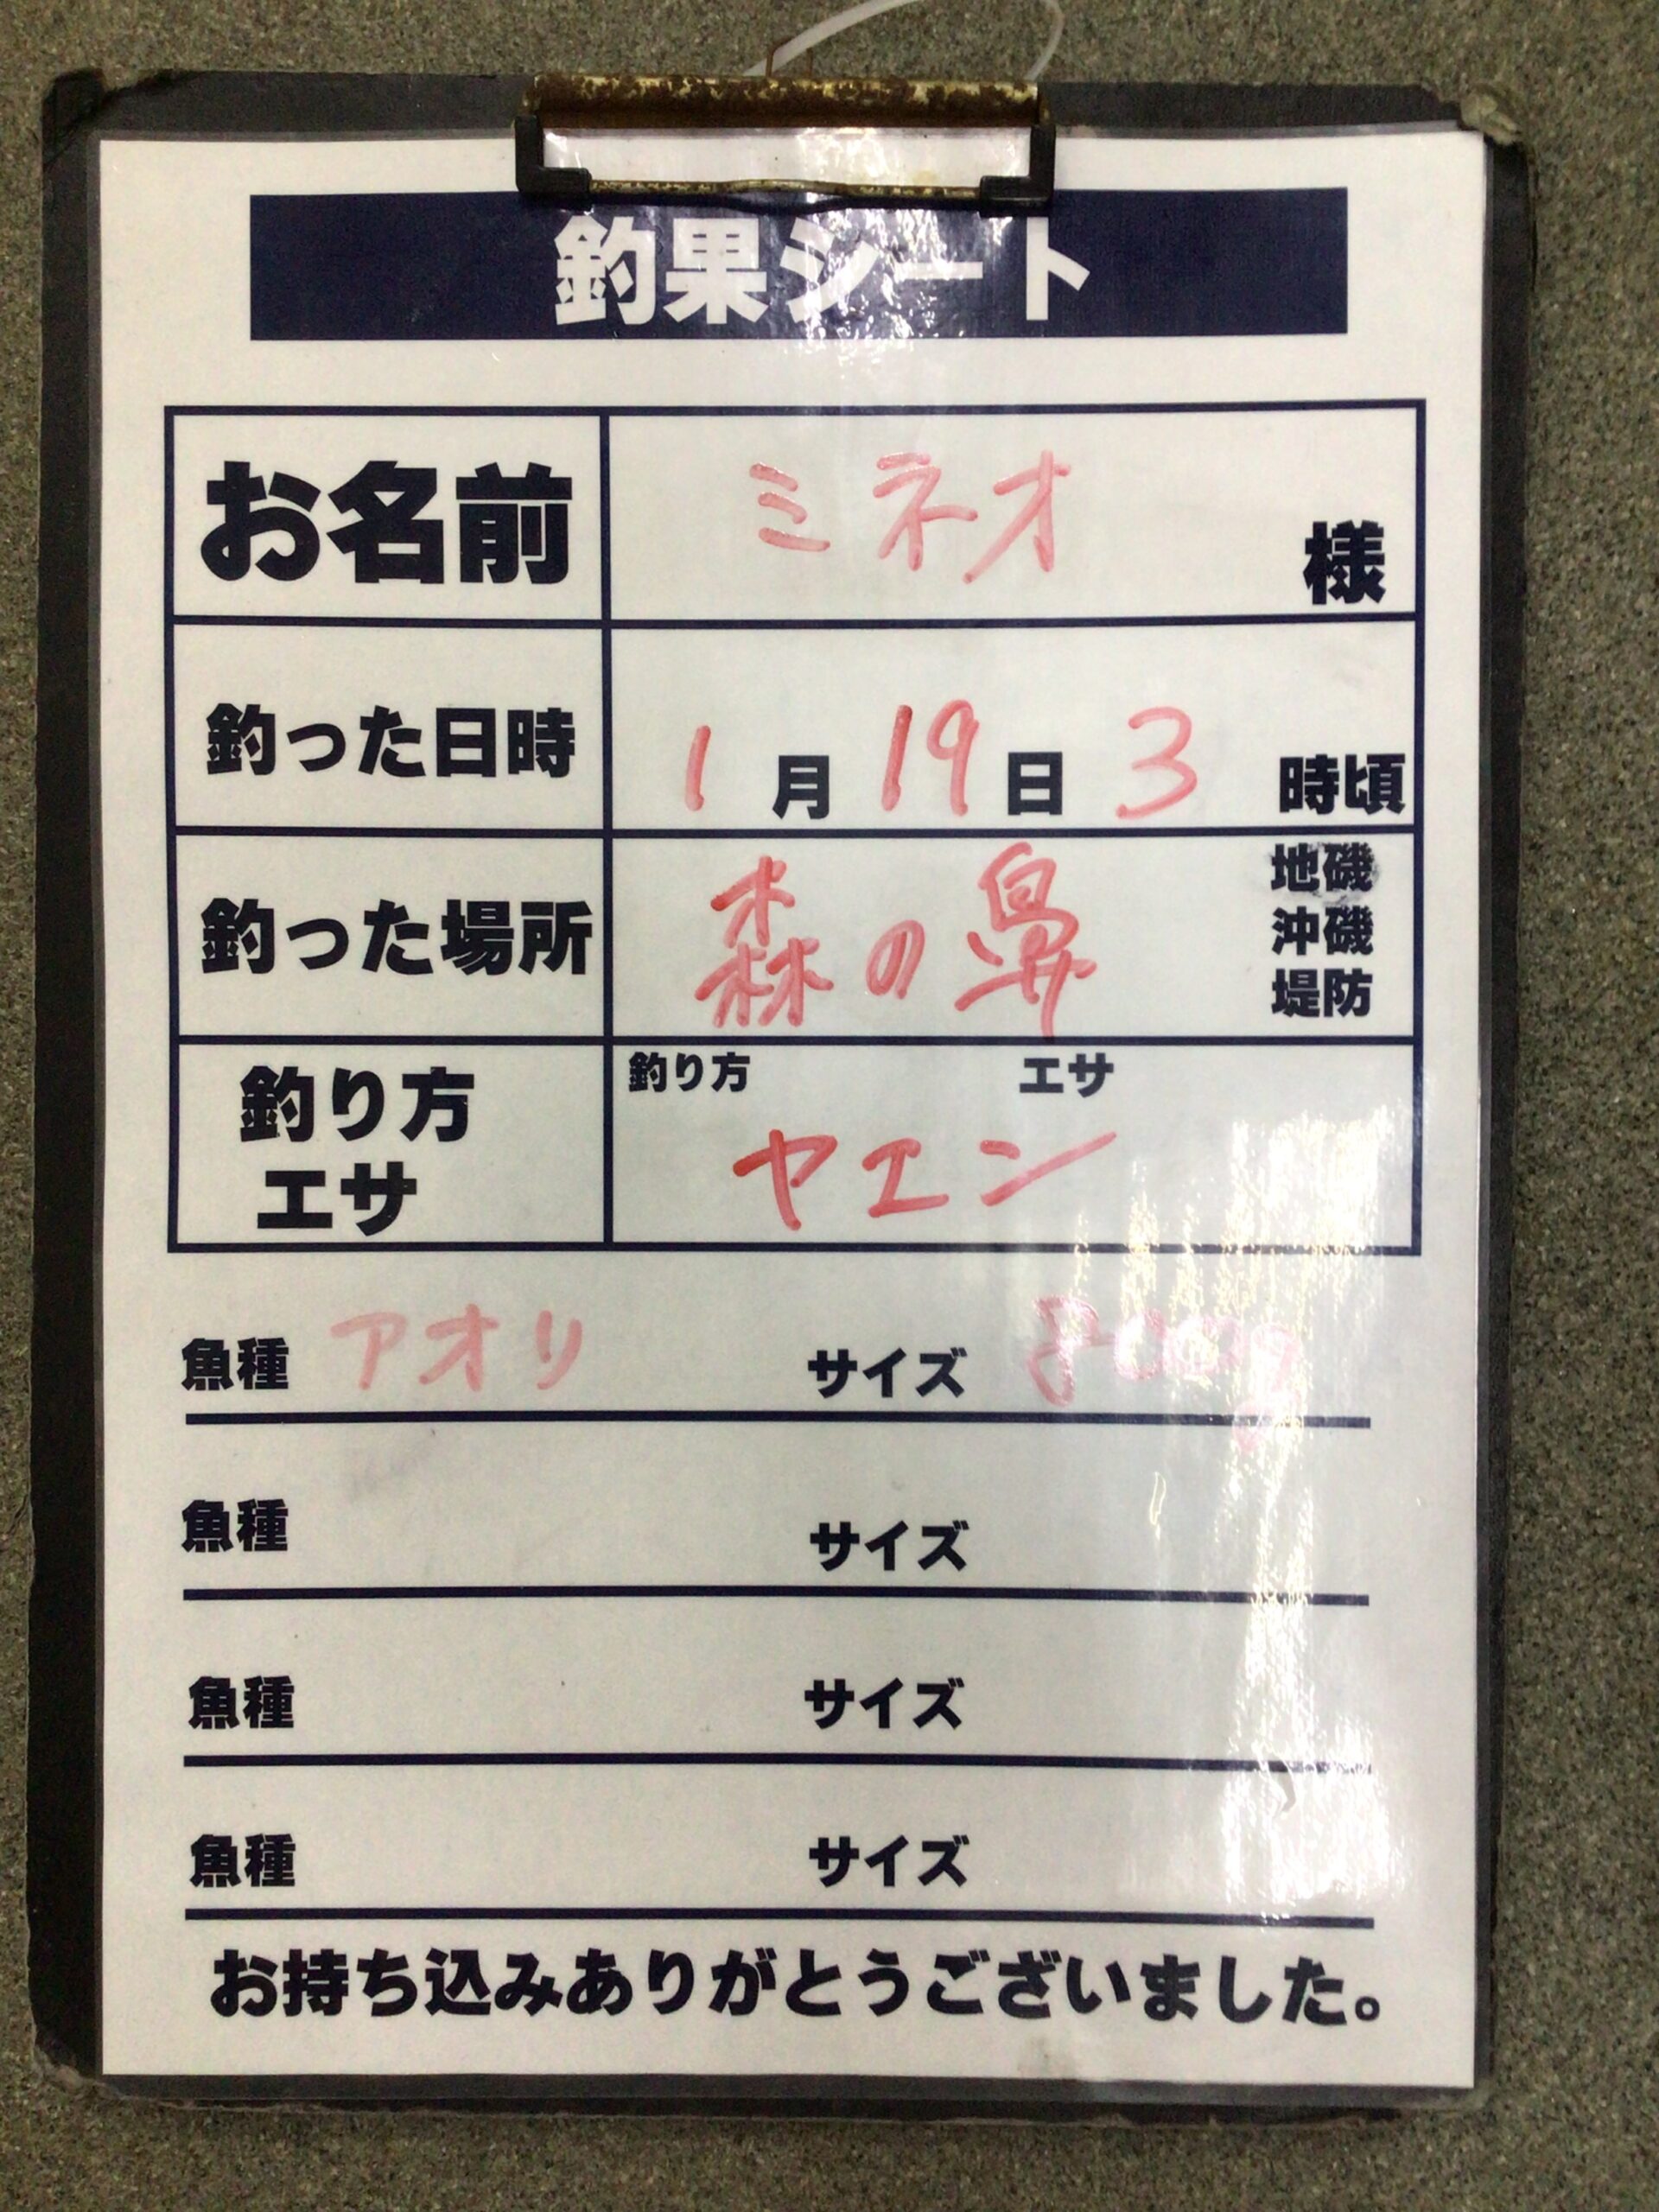 釣果シート
お名前 ミネオ 様
釣った日時 1月19日3時頃
釣った場所 森の鼻 地磯
沖磯
堤防
釣り方 エサ
釣り方
エサ
ヤエン
魚種 アオリ サイズ
魚種 サイズ
魚種 サイズ
魚種 サイズ
お持ち込みありがとうございました。